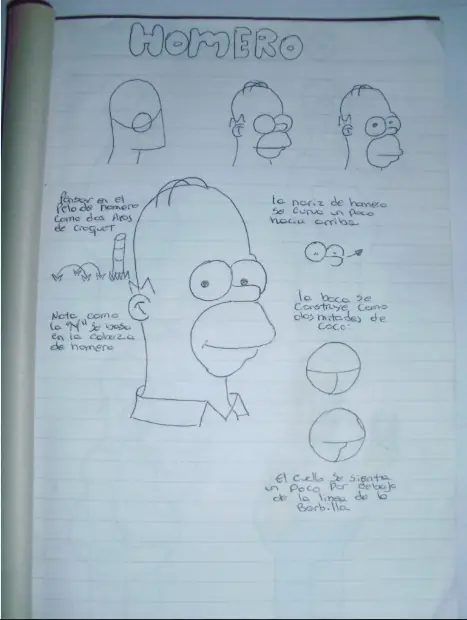 HOMERO
Pensar en el
Pelo de homero
Como dos Aros
de Croquet
Note como
la "M" se basa
en la cabeza
de homero
la nariz de homero
se curva un poco
hacia arriba
la boca se
construye como
dos mitades de
coco:
El cuello se sienta
un poco por debajo
de la linea de la
Barbilla